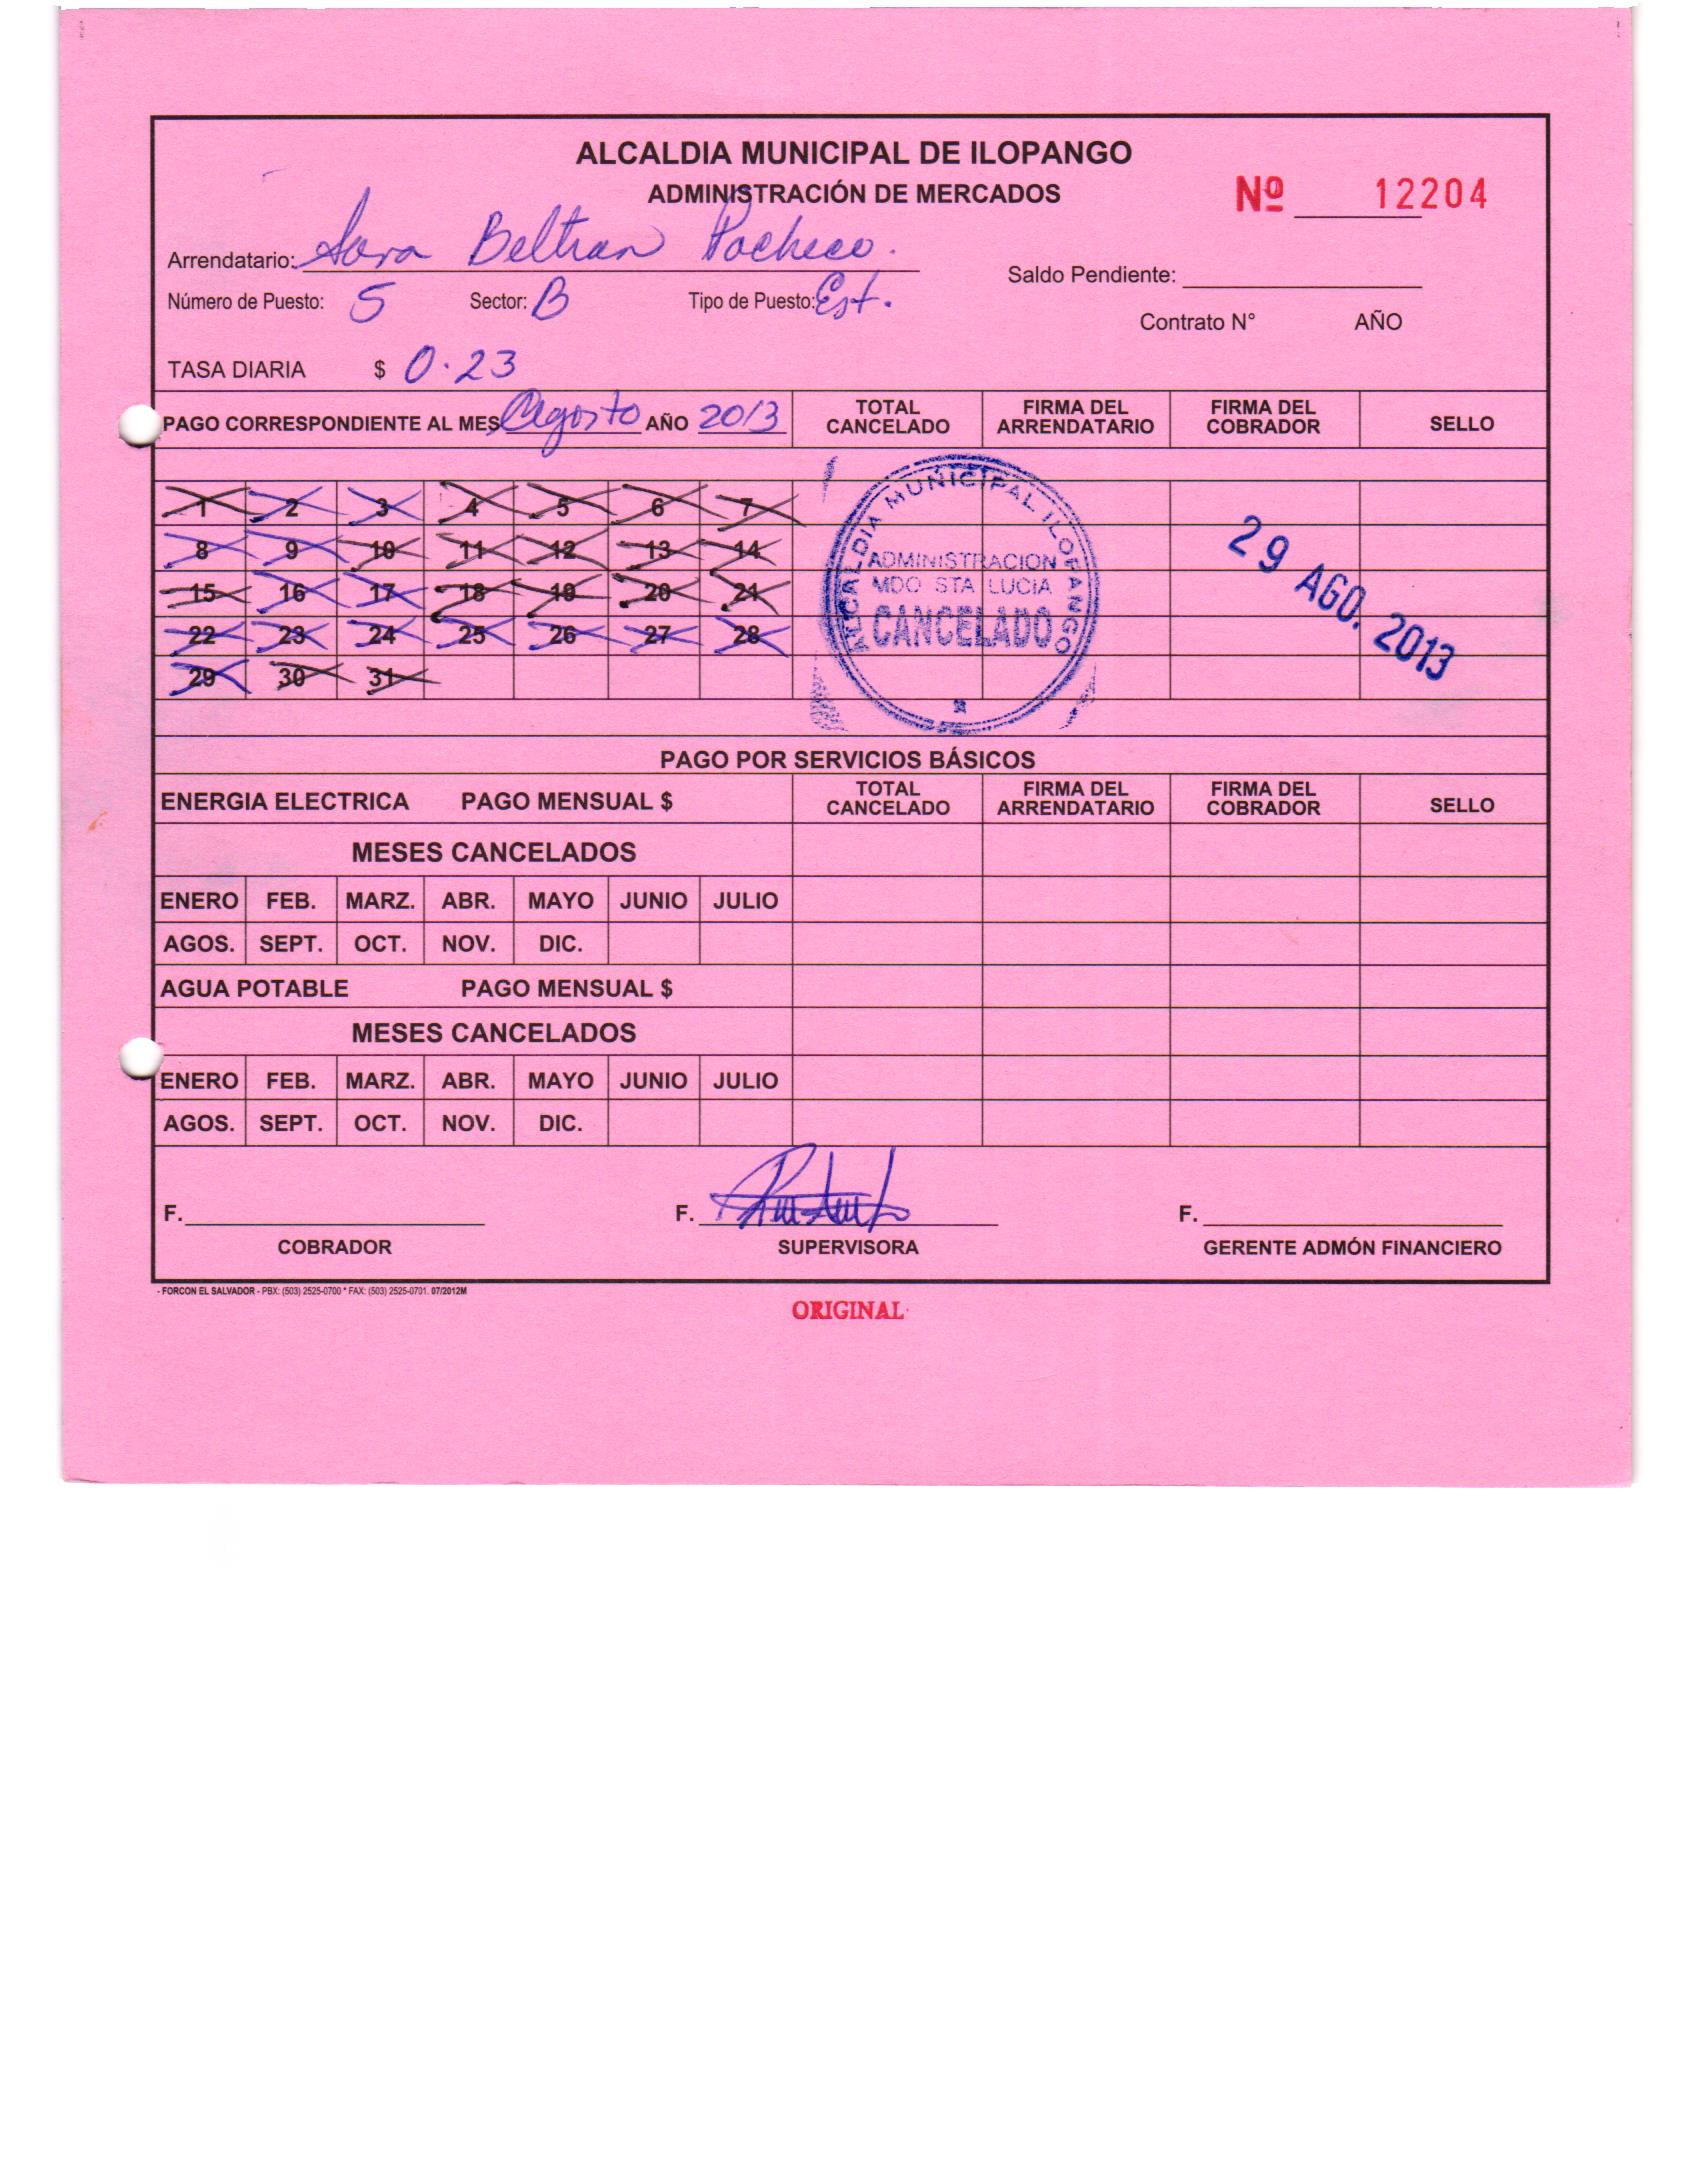 ALCALDIA MUNICIPAL DE ILOPANGO
ADMINISTRACIÓN DE MERCADOS
Nº 12204
Arrendatario: Sara Beltran Pacheco.
Saldo Pendiente:
Número de Puesto: 5 Sector: B Tipo de Puesto: Est.
Contrato N° AÑO
TASA DIARIA $ 0.23
PAGO CORRESPONDIENTE AL MES Agosto AÑO 2013 TOTAL CANCELADO FIRMA DEL ARRENDATARIO FIRMA DEL COBRADOR SELLO
1 2 3 4 5 6 7
8 9 10 11 12 13 14
15 16 17 18 19 20 21
22 23 24 25 26 27 28
29 30 31
ALCALDIA MUNICIPAL ILOPANGO
ADMINISTRACION
MDO STA LUCIA
CANCELADO
29 AGO. 2013
PAGO POR SERVICIOS BÁSICOS
ENERGIA ELECTRICA PAGO MENSUAL $ TOTAL CANCELADO FIRMA DEL ARRENDATARIO FIRMA DEL COBRADOR SELLO
MESES CANCELADOS
ENERO FEB. MARZ. ABR. MAYO JUNIO JULIO
AGOS. SEPT. OCT. NOV. DIC.
AGUA POTABLE PAGO MENSUAL $
MESES CANCELADOS
ENERO FEB. MARZ. ABR. MAYO JUNIO JULIO
AGOS. SEPT. OCT. NOV. DIC.
F. F. F.
COBRADOR SUPERVISORA GERENTE ADMÓN FINANCIERO
- FORCON EL SALVADOR - PBX: (503) 2525-0700 * FAX: (503) 2525-0701. 07/2012M
ORIGINAL